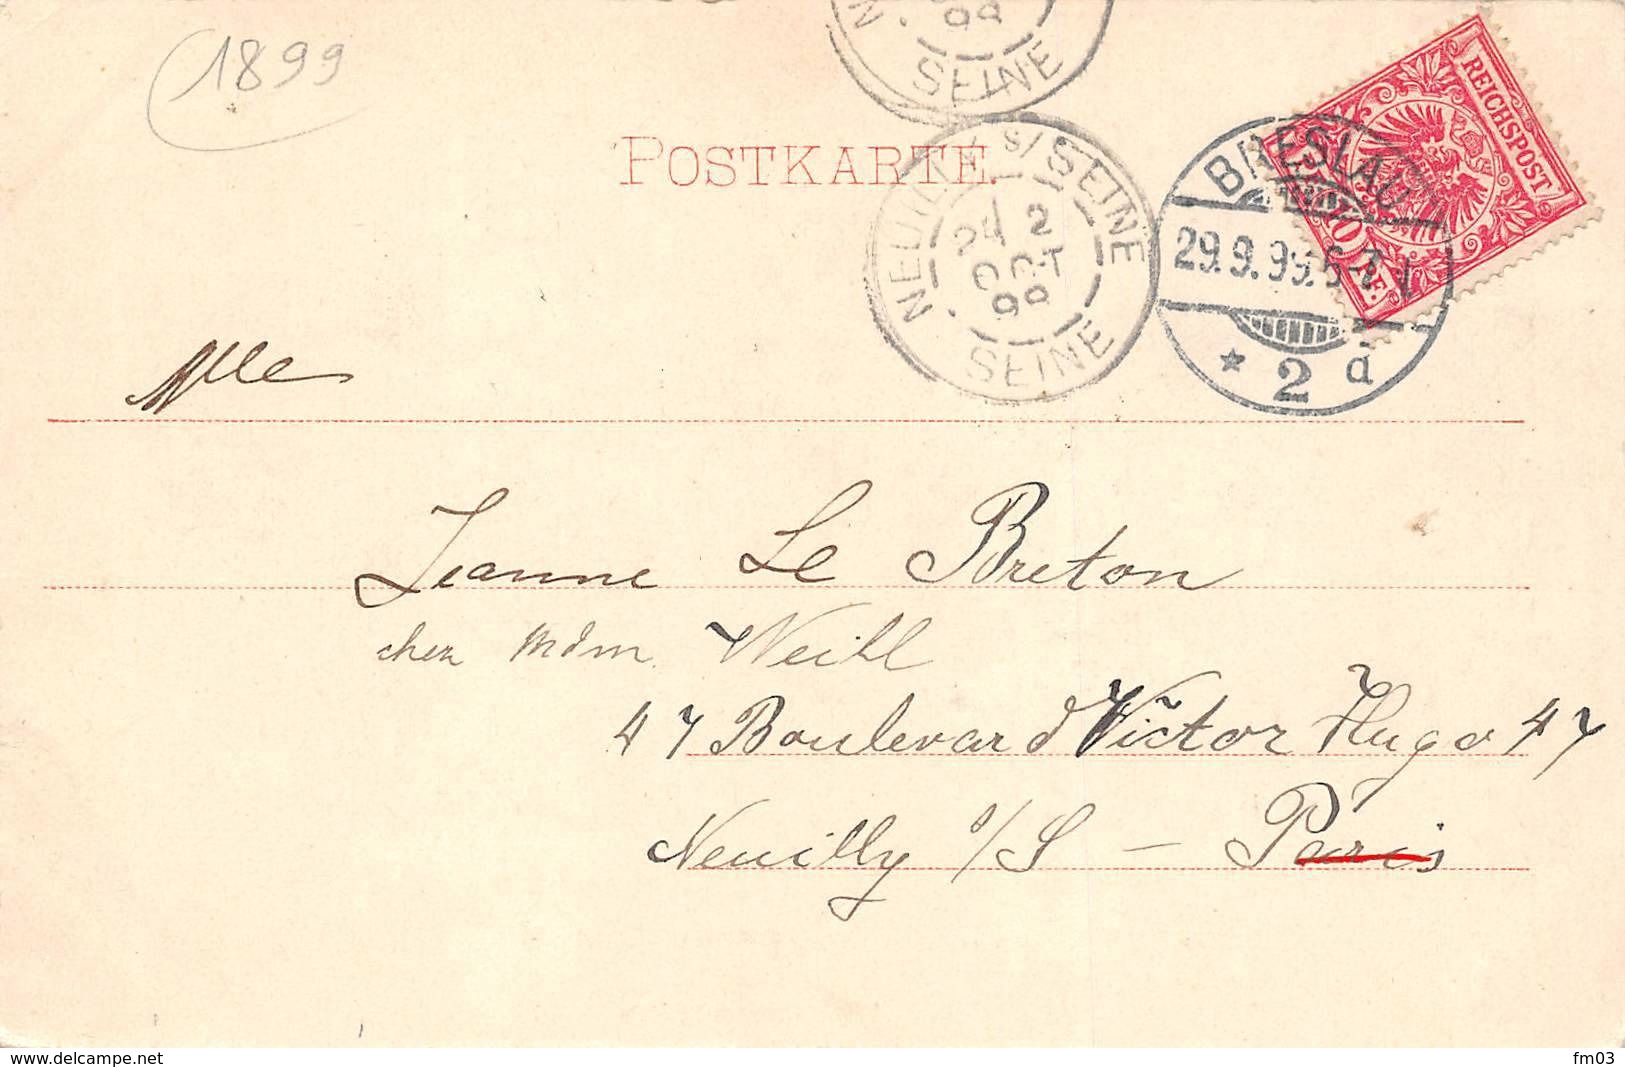 1899
SEINE
POSTKARTE.
NEUILLY S/ SEINE
2
OCT
99
SEINE
BRESLAU
29.9.99. 6-7
* 2 d
REICHSPOST
10
PF.
Mlle
Jeanne Le Breton
chez Mdm. Weihl
47 Boulevard Victor Hugo 47
Neuilly s/S – Paris
www.delcampe.net
fm03